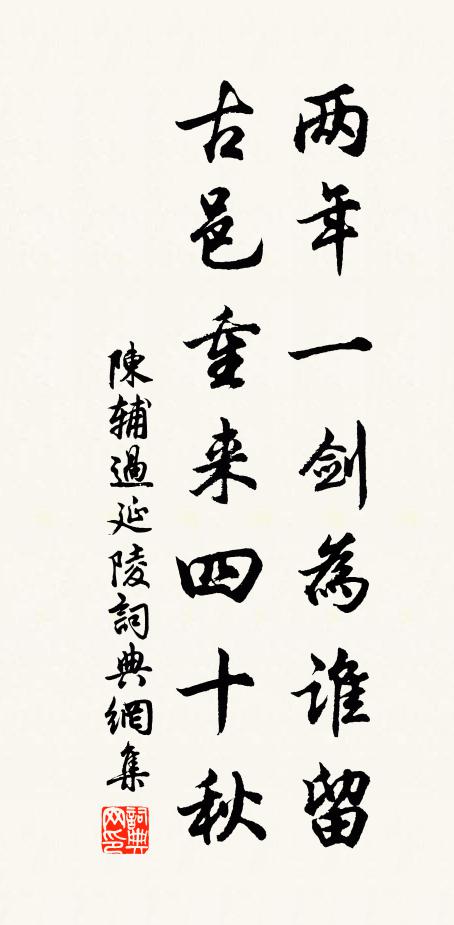 两年一剑為谁留
古邑重来四十秋
陳辅過延陵詞典網集
詞典网印